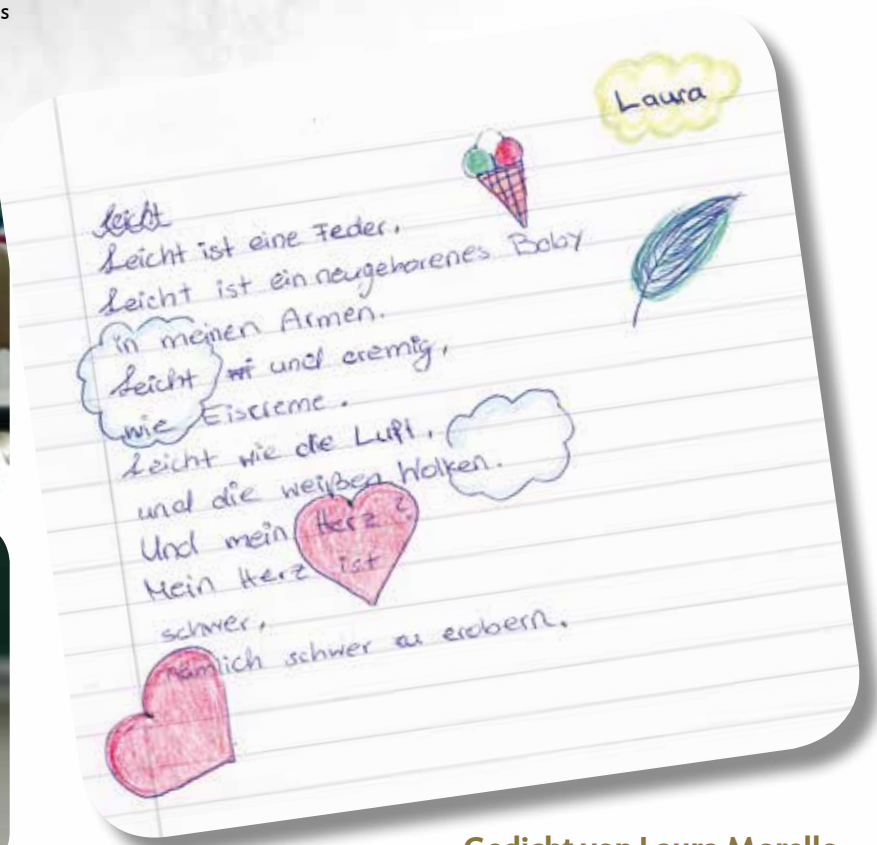 s
Laura
Leicht
Leicht ist eine Feder,
Leicht ist ein neugeborenes Baby
in meinen Armen.
Leicht und cremig,
wie Eiscreme.
Leicht wie die Luft,
und die weißen Wolken.
Und mein Herz?
Mein Herz ist
schwer,
nämlich schwer zu erobern.
Gedicht von Laura Morello